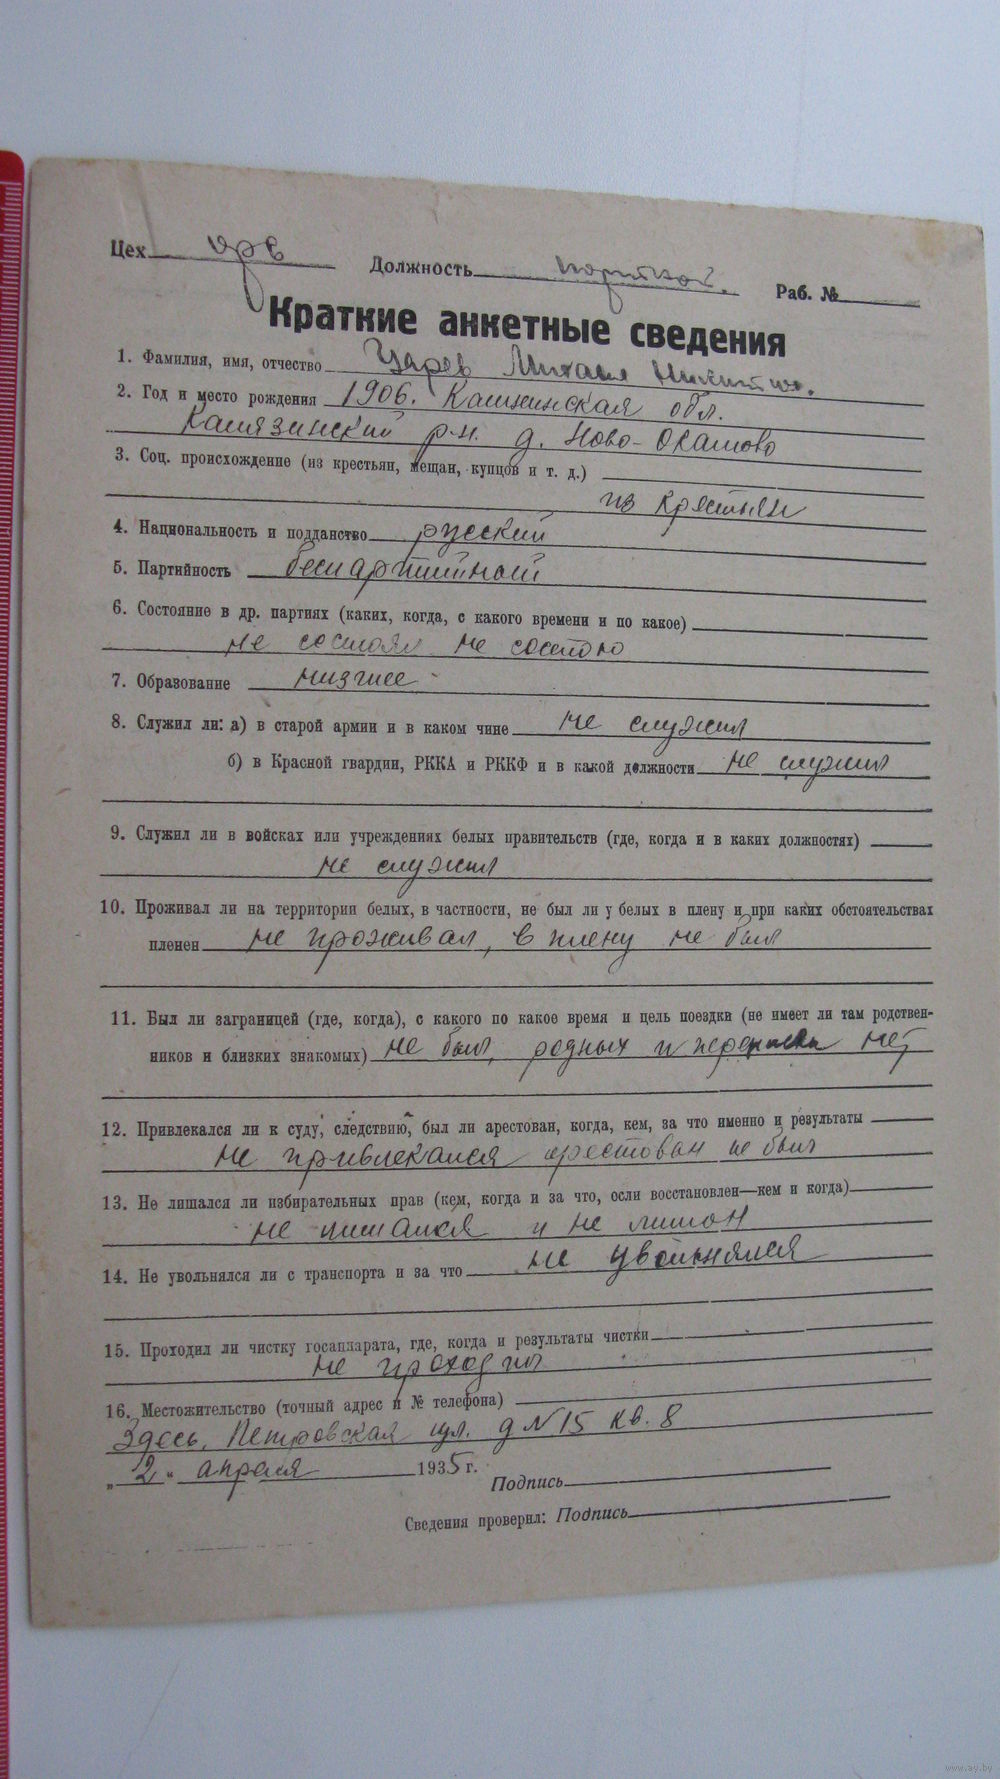 Цех Должность Раб. №
Краткие анкетные сведения
1. Фамилия, имя, отчество Царев Михаил
2. Год и место рождения 1906. Калининская обл.
Калязинский р-н. д. Ново-Окатово
3. Соц. происхождение (из крестьян, мещан, купцов и т. д.)
из крестьян
4. Национальность и подданство русский
5. Партийность беспартийный
6. Состояние в др. партиях (каких, когда, с какого времени и по какое)
не состоял не состою
7. Образование низшее
8. Служил ли: а) в старой армии и в каком чине не служил
б) в Красной гвардии, РККА и РККФ и в какой должности не служил
9. Служил ли в войсках или учреждениях белых правительств (где, когда и в каких должностях)
не служил
10. Проживал ли на территории белых, в частности, не был ли у белых в плену и при каких обстоятельствах
пленен не проживал, в плену не был
11. Был ли заграницей (где, когда), с какого по какое время и цель поездки (не имеет ли там родствен-
ников и близких знакомых) не был, родных и переписки нет
12. Привлекался ли к суду, следствию, был ли арестован, когда, кем, за что именно и результаты
не привлекался арестован не был
13. Не лишался ли избирательных прав (кем, когда и за что, осли восстановлен—кем и когда)
не лишался и не лишон
14. Не увольнялся ли с транспорта и за что не увольнялся
15. Проходил ли чистку госаппарата, где, когда и результаты чистки
не проходил
16. Местожительство (точный адрес и № телефона)
Здесь, Петровская ул. д N 15 кв. 8
„2“ апреля 1935 г.
Подпись
Сведения проверил: Подпись
www.ay.by